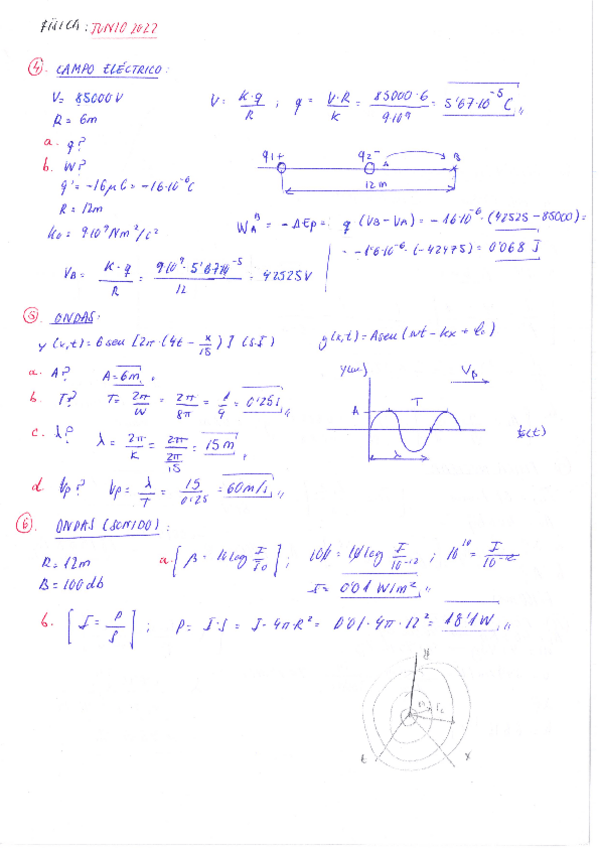 FÍSICA: JUNIO 2022
④ CAMPO ELÉCTRICO:
V= 85000 V
R= 6m
V= K·q / R ; q= V·R / K = 85000·6 / 9·10⁹ = 5'67·10⁻⁵ C
a. q?
b. W?
q'= -16μC = -16·10⁻⁶C
R= 12m
K₀= 9·10⁹ Nm²/C²
q1+ q2- A B
12m
W_A^B = -ΔEp = q (VB-VA) = -16·10⁻⁶·(42525-85000)=
= -1'6·10⁻⁶·(-42475) = 0'068 J
VB= K·q / R = 9·10⁹·5'67·10⁻⁵ / 12 = 42525V
⑤ ONDAS:
y(x,t)=6sen[2π·(4t - x/15)] (S.I)
y(x,t)=Asen(wt-kx+φ₀)
a. A? A=6m
b. T? T= 2π/W = 2π/8π = 1/4 = 0'25s
c. λ? λ= 2π/K = 2π / 2π/15 = 15m
d. Vp? Vp= λ/T = 15/0'25 = 60m/s
y(m)
Vp
A
T
λ
(t)
⑥ ONDAS (SONIDO):
R= 12m
B= 100db
a. [β= 10log I/I₀] ; 100=10log I/10⁻¹² ; 10¹⁰= I/10⁻¹²
I= 0'01 W/m²
b. [I= P/S] ; P= I·S = I·4πR² = 0'01·4π·12² = 18'1W
y
z
x